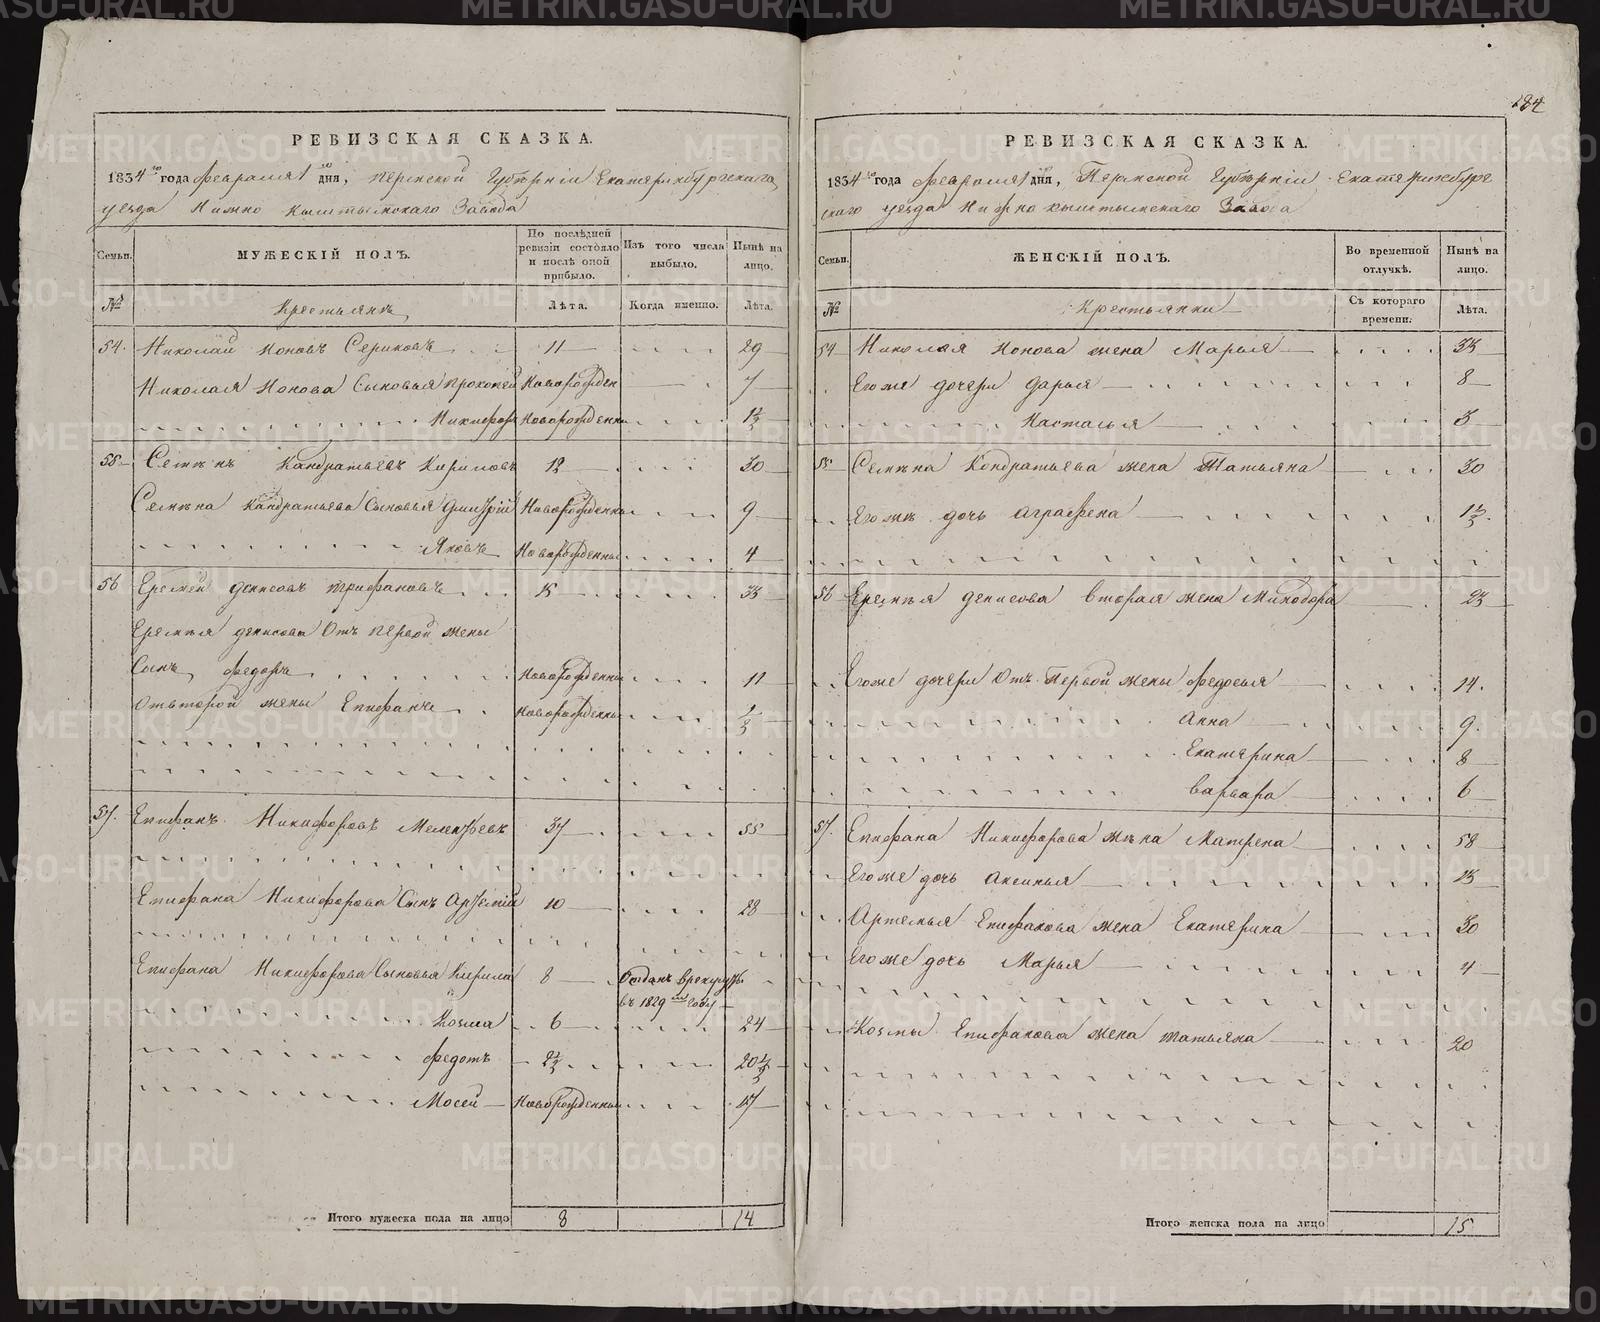 184
РЕВИЗСКАЯ СКАЗКА.
1834го года февраля 1го дня, Пермской Губѣрніи Екатеринбургскаго
уезда Нижно Кыштымскаго Завода
Семьи.
МУЖЕСКІЙ ПОЛЪ.
По послѣдней ревизіи состояло и послѣ оной прибыло.
Изъ того числа выбыло.
Нынѣ на лицо.
№
Крестьянѣ
Лѣта.
Когда именно.
Лѣта.
54. Николай Ионовъ Сериковъ 11 29
Николая Ионова Сыновья Прокопей Новорожден 7
Никифоръ Новорожденны 1½
55 Семѣнъ Кандратьевъ Кириловъ 12 30
Семѣна Кандратьева Сыновья Дмитрій Новорожденны 9
Яковъ Новорожденны 4
56 Еремей Денисовъ Трифановъ 15 33
Еремѣя Денисова Отъ Первой жены
Сынъ Федоръ Новорожденны 11
Отъ второй жены Епифанъ Новорожденны ½
57. Епифанъ Никифоровъ Мелентьевъ 37 55
Епифана Никифорова Сынъ Артемій 10 28
Епифана Никифорова Сыновья Кирила 8 Отданъ в рекруты
въ 1829м году
Козма 6 24
Федотъ 2½ 20½
Мосей Новорожденны 17
Итого мужеска пола на лицо 8 14
РЕВИЗСКАЯ СКАЗКА.
1834го года февраля 1го дня, Пермской Губѣрніи Екатеринбург
скаго уезда Нижно Кыштымскаго Завода
Семьи.
ЖЕНСКІЙ ПОЛЪ.
Во временной отлучкѣ.
Нынѣ на лицо.
№
Крестьянки
Съ котораго времени.
Лѣта.
54 Николая Ионова жена Марья 33
Его же дочери Дарья 8
Настасья 3
55 Семѣна Кондратьева жена Татьяна 30
Его жѣ дочь Аграфена 1½.
56 Еремѣя Денисова вторая жена Минодора 23
Его же дочери Отъ Первой жены Федосья 14.
Анна 9.
Екатерина 8
Варвара 6
57. Епифана Никифорова жѣна Матрена 58
Его же дочь Аксинья 13
Артемья Епифанова жена Екатерина 30
Его же дочь Марья 4
Козмы Епифанова жена Татьяна 20
Итого женска пола на лицо 15
METRIKI.GASO-URAL.RU